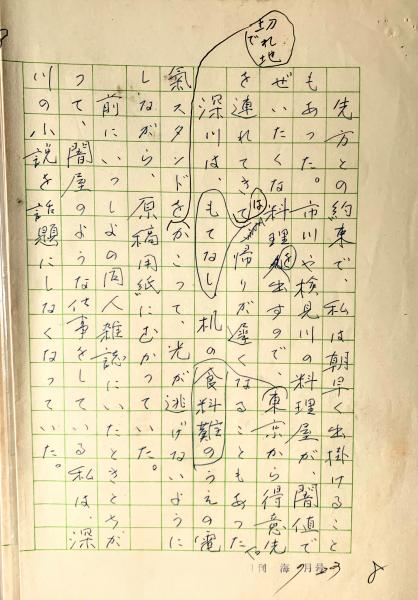 切れ地で
先方との約束で、私は朝早く出掛けること
もあった。市川や検見川の料理屋が、闇値で
ぜいたくな料理を出すので、東京から得意先
を連れてきて帰りが遅くなることもあった。
は
もてなし
食料難の
深川は、机のうえの電
氣スタンドをかこって、光が逃げないように
しながら、原稿用紙にむかっていた。
前にいっしょの同人雑誌にいたときとちが
って、闇屋のような仕事をしている私は、深
川の小説を話題にしなくなっていた。
刊 海 月号
8